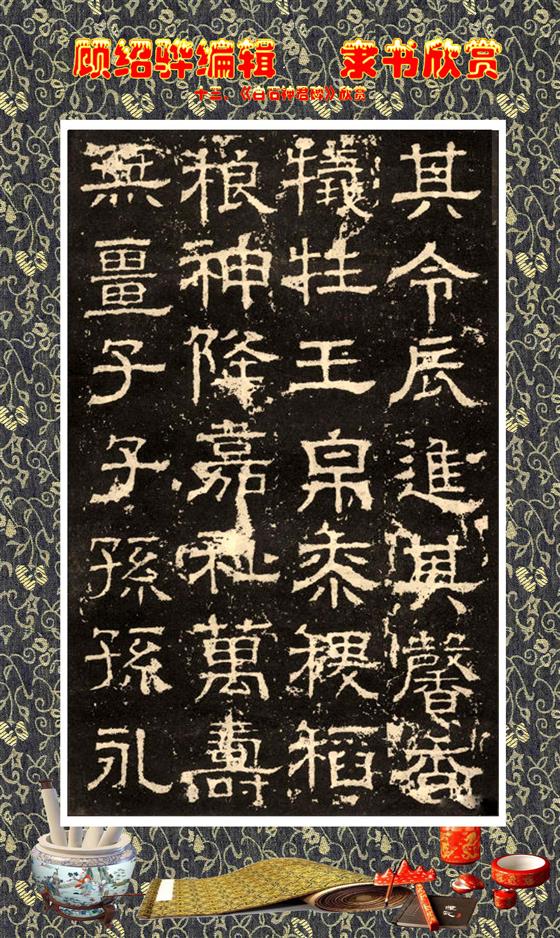 顾绍骅编辑 隶书欣赏
十三、《白石神君碑》欣赏
其令辰進其馨香
犧牲玉帛黍稷稻
粮神降嘉祉萬壽
無畺子子孫孫永